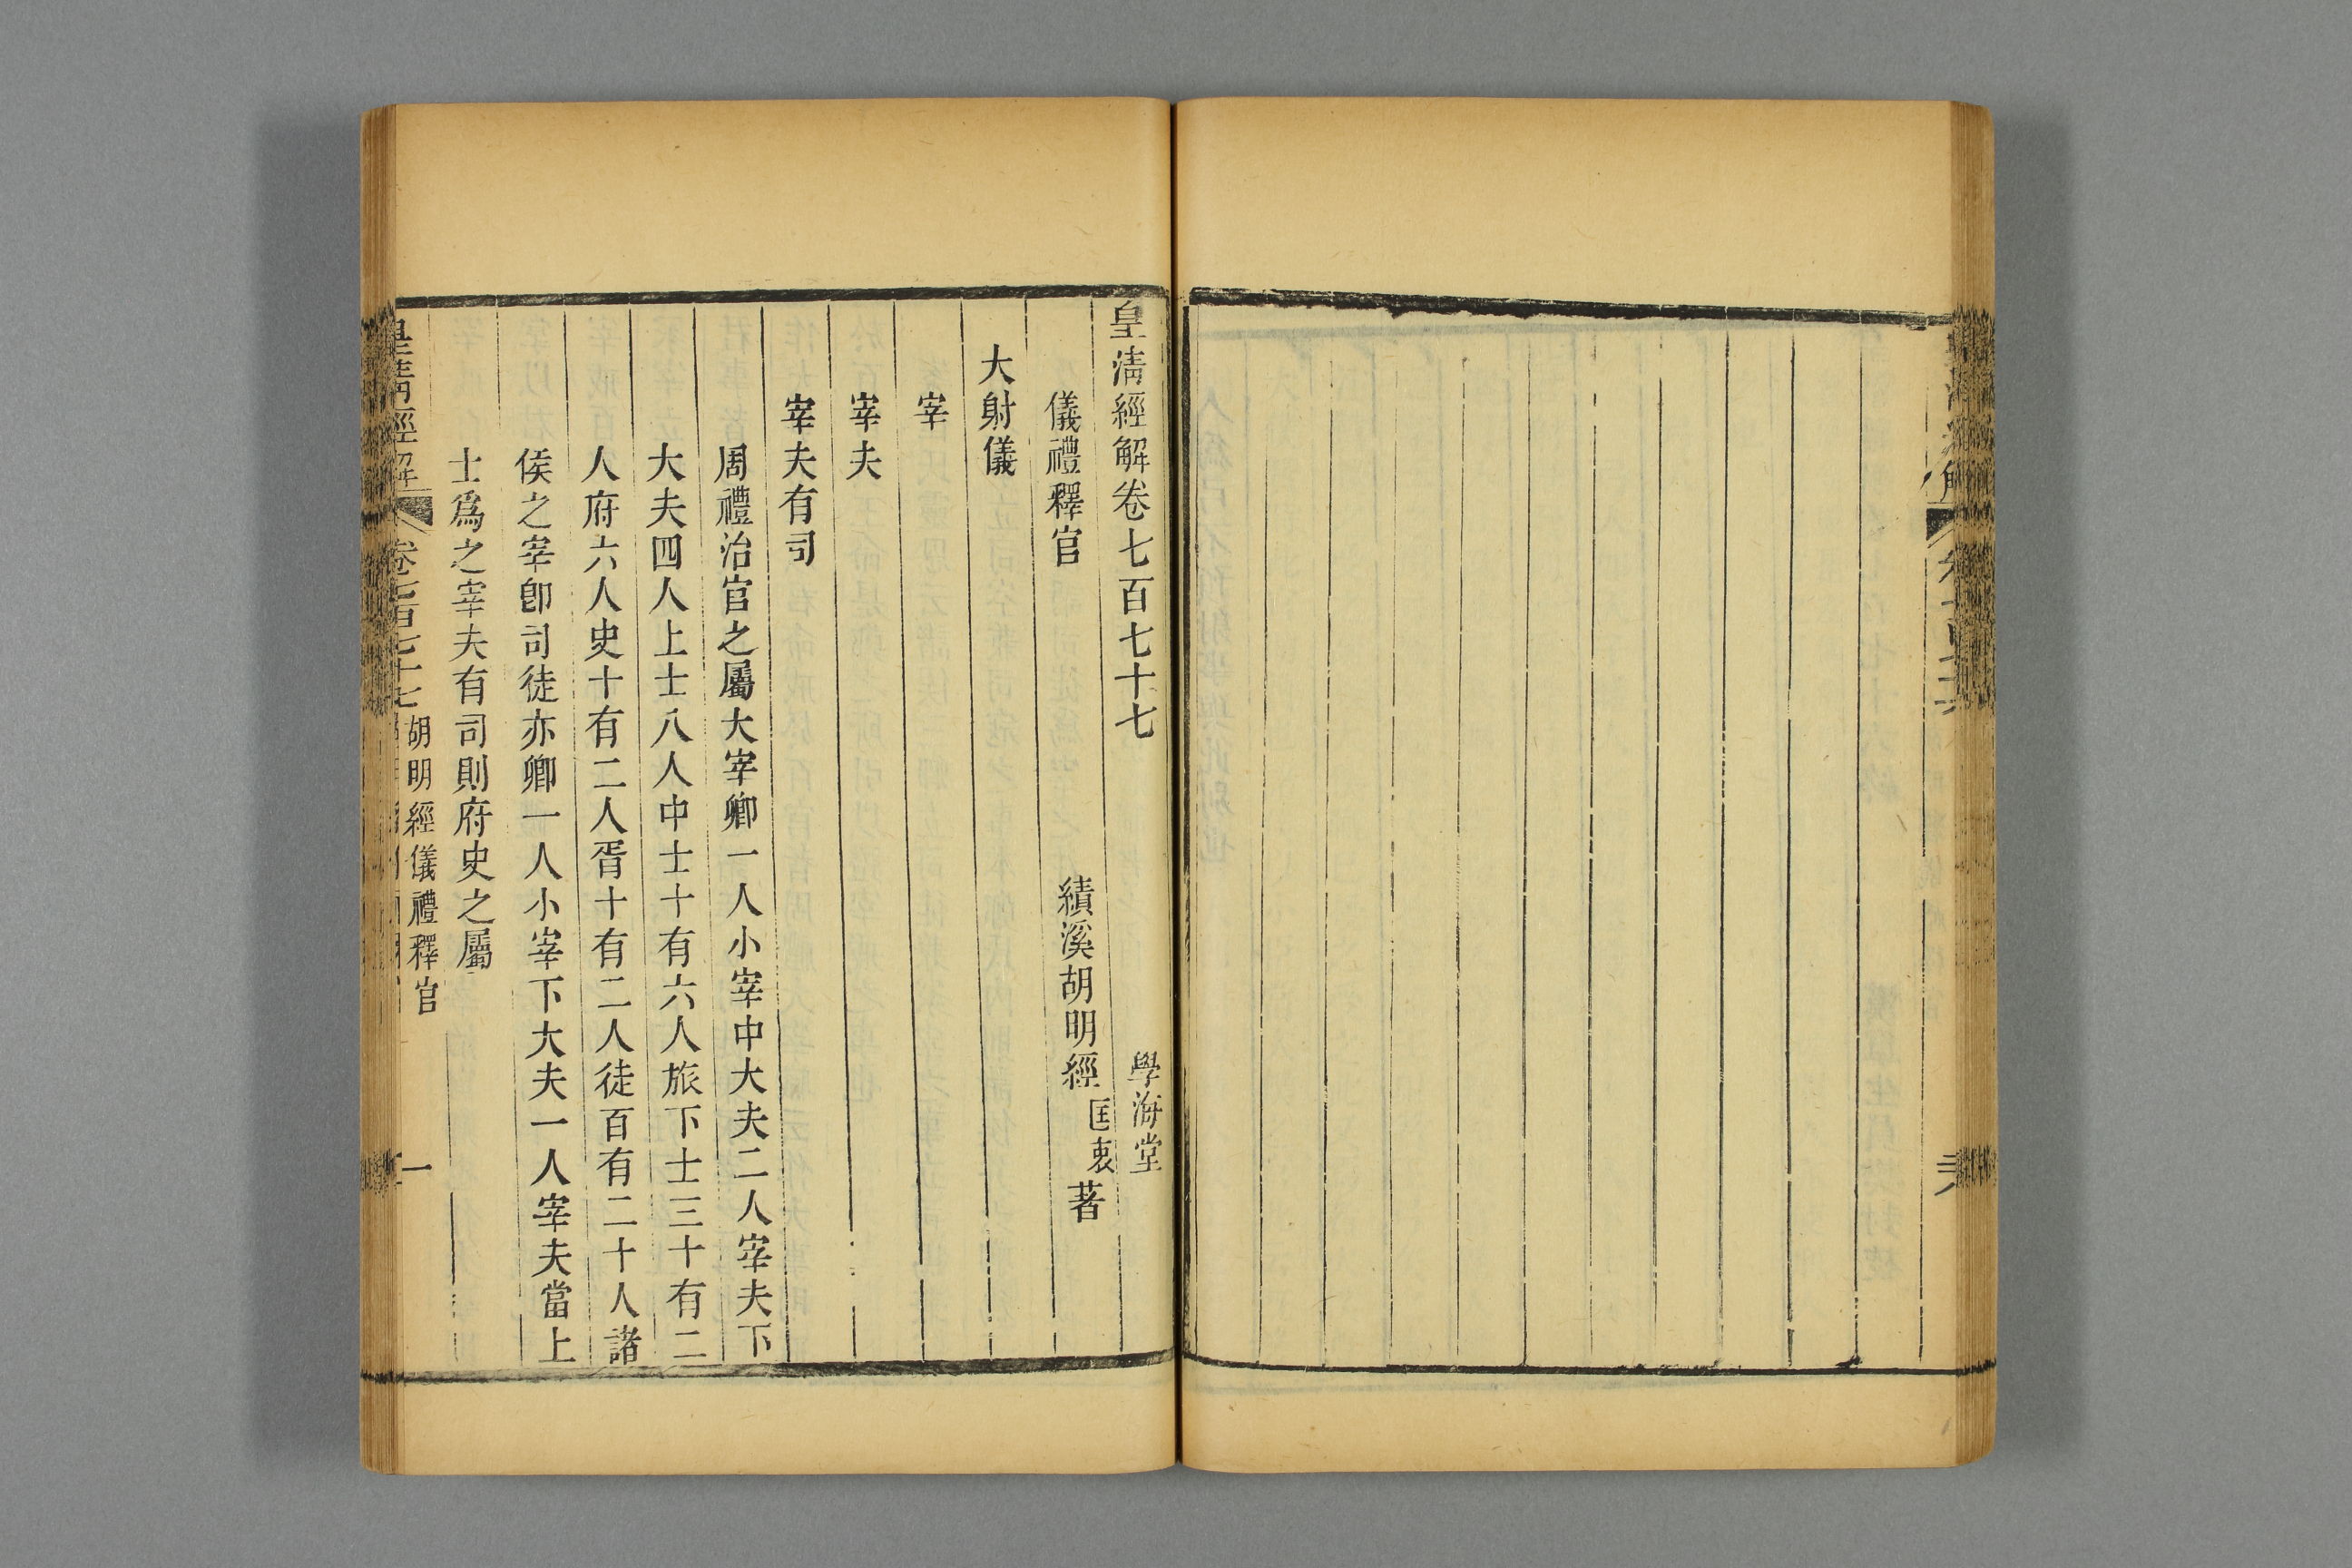 皇清經解卷七百七十七
學海堂
儀禮釋官
績溪胡明經匡衷著
大射儀
宰
宰夫
宰夫有司
周禮治官之屬大宰卿一人小宰中大夫二人宰夫下
大夫四人上士八人中士十有六人旅下士三十有二
人府六人史十有二人胥十有二人徒百有二十人諸
侯之宰卽司徒亦卿一人小宰下大夫一人宰夫當上
士爲之宰夫有司則府史之屬
皇淸經解
卷七百七十七
胡明經儀禮釋官
一